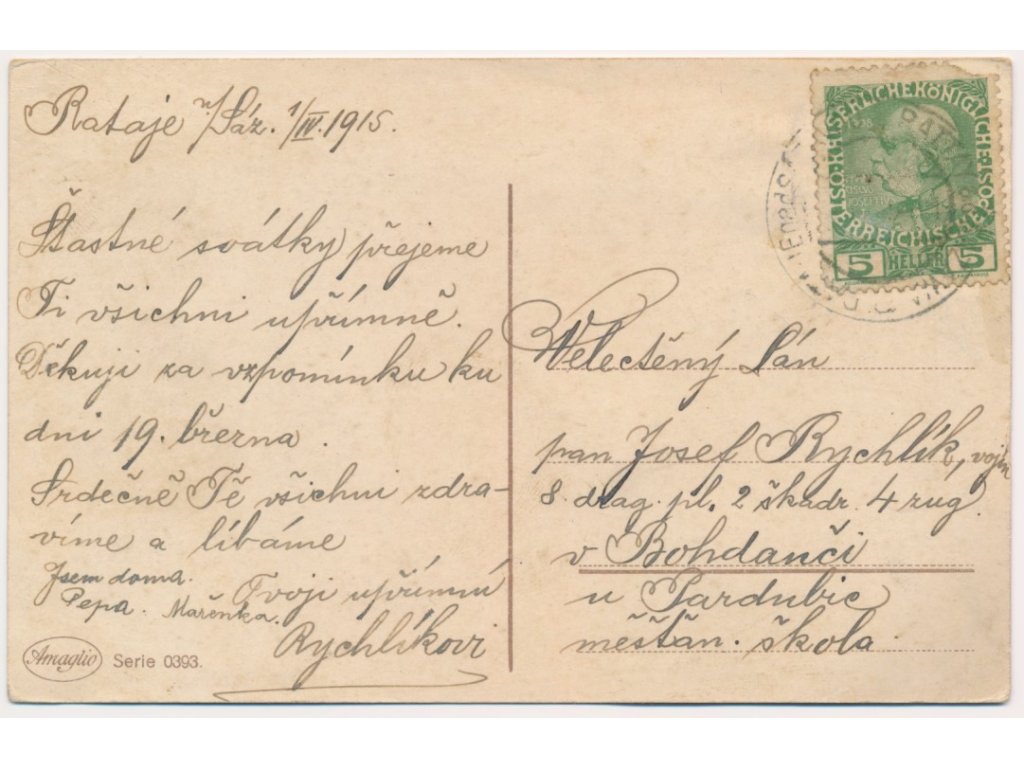 Rataje n/Sáz. 1/IV. 1915.
Štastné svátky přejeme
Ti všichni upřímně.
Děkuji za vzpomínku ku
dni 19. března.
Srdečně Tě všichni zdra-
víme a líbáme
Jsem doma. Tvoji upřímní
Pepa. Mařenka.
Rychlíkovi
Amaglio Serie 0393.
KAISERLICHEKÖNIGLICHE POST
ÖSTERREICHISCHE
5 HELLER 5
Velectěný Pán
pan Josef Rychlík, vojín
8 drag. pl. 2 škadr. 4 zug.
v Bohdanči
u Pardubic
měšťan. škola